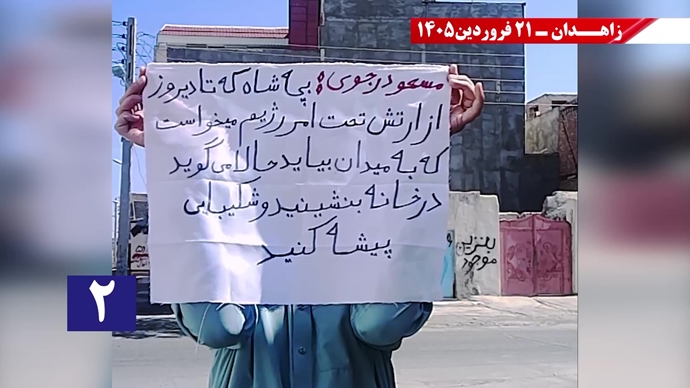 زاهدان ـ ۲۱ فروردین ۱۴۰۵
مسعود رجوی: بچه شاه که تا دیروز
از ارتش تحت امر رژیم میخواست
که به میدان بیاید حالا می‌گوید
در خانه بنشینید و شکیبایی
پیشه کنید
بنزین
موجود
۲